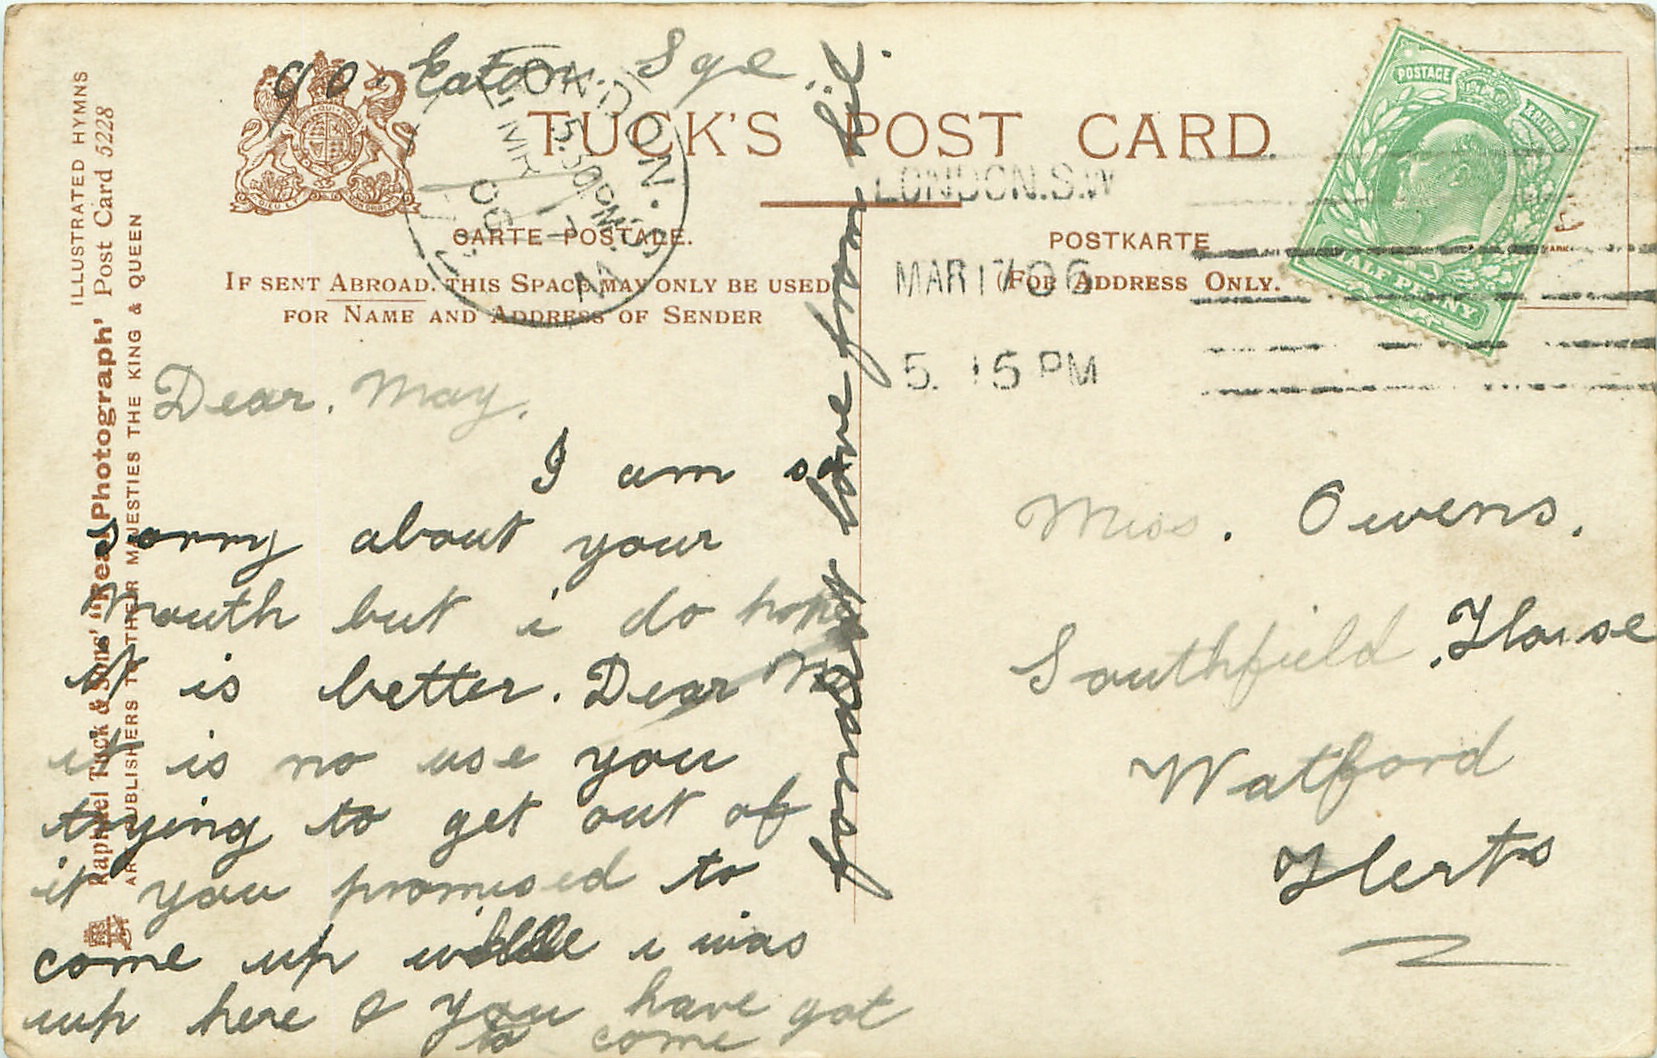 90. Eaton. Sqe
TUCK'S POST CARD
CARTE POSTALE.
POSTKARTE
IF SENT ABROAD. THIS SPACE MAY ONLY BE USED
FOR NAME AND ADDRESS OF SENDER
FOR ADDRESS ONLY.
LONDON. S.W
5.30 PM
MR 17
06
LONDON.S.W
MAR 17 06
5. 15 PM
POSTAGE
& REVENUE
HALF PENNY
ILLUSTRATED HYMNS
Raphael Tuck & Sons' "Real Photograph' Post Card 5228
ART PUBLISHERS TO THEIR MAJESTIES THE KING & QUEEN
Dear. May.
I am so
sorry about your
mouth but i do hope
it is better. Dear M
it is no use you
trying to get out of
it you promised to
come up while i was
up here & you have got
to come
fondest love from Lil.
Miss. Owens.
Southfield. House
Watford
Herts